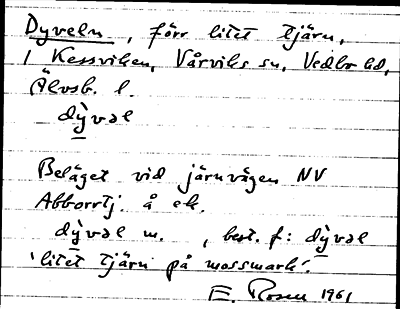 Dyveln, förr litet tjärn,
i Kessviken, Vårviks sn, Vedbo hd,
Älvsb. l.
dỳvəl
Beläget vid järnvägen NV
Abborrtj. å ek.
dỳvəl m. , best. f: dỳvəl
'litet tjärn på mossmark'.
E. Rosen 1961